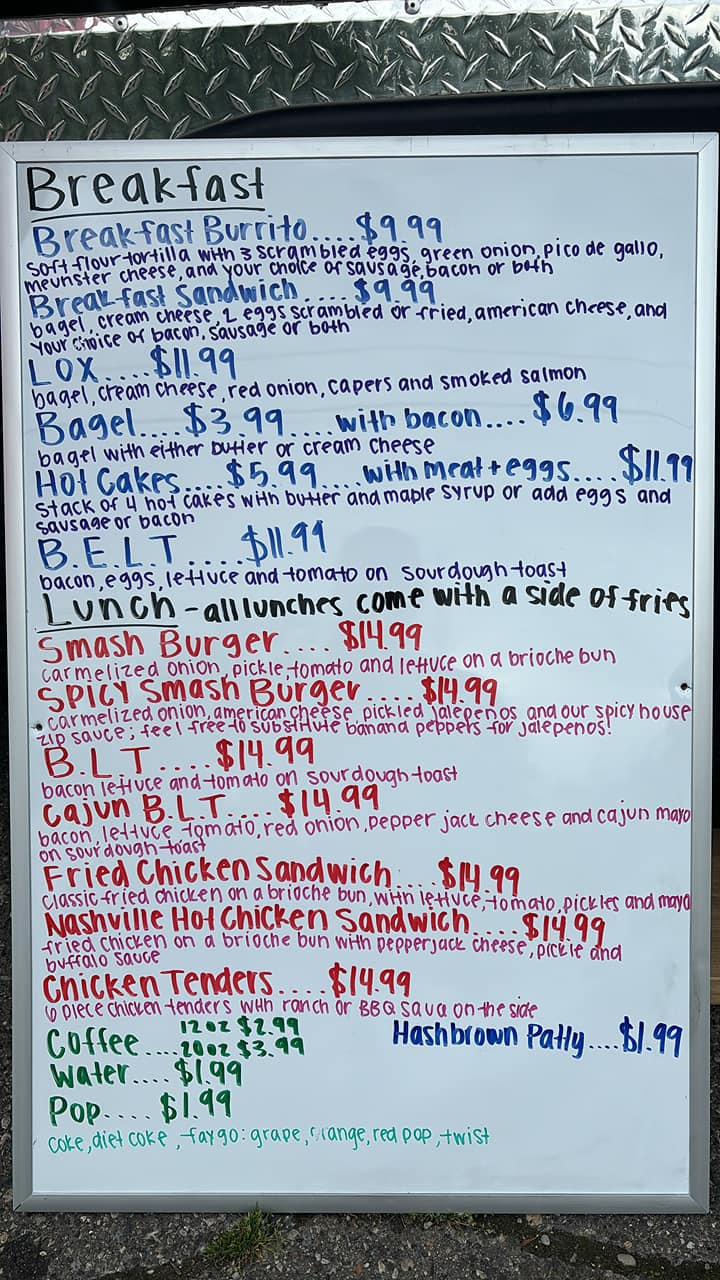 Breakfast
Breakfast Burrito....$9.99
soft flour tortilla with 3 scrambled eggs, green onion, pico de gallo,
meunster cheese, and your choice of sausage, bacon or both
Breakfast Sandwich....$9.99
bagel, cream cheese, 2 eggs scrambled or fried, american cheese, and
your choice of bacon, sausage or both
LOX....$11.99
bagel, cream cheese, red onion, capers and smoked salmon
Bagel....$3.99....with bacon....$6.99
bagel with either butter or cream cheese
Hot Cakes....$5.99....with meat + eggs....$11.99
stack of 4 hot cakes with butter and maple syrup or add eggs and
sausage or bacon
B.E.L.T.....$11.99
bacon, eggs, lettuce and tomato on sourdough toast
Lunch - all lunches come with a side of fries
Smash Burger....$14.99
carmelized onion, pickle, tomato and lettuce on a brioche bun
SPICY Smash Burger....$14.99
carmelized onion, american cheese, pickled jalepenos and our spicy house
zip sauce; feel free to substitute banana peppers for jalepenos!
B.L.T.....$14.99
bacon lettuce and tomato on sourdough toast
Cajun B.L.T....$14.99
bacon, lettuce, tomato, red onion, pepper jack cheese and cajun mayo
on sourdough toast
Fried Chicken Sandwich....$14.99
classic fried chicken on a brioche bun, with lettuce, tomato, pickles and mayo
Nashville Hot Chicken Sandwich....$14.99
fried chicken on a brioche bun with pepperjack cheese, pickle and
buffalo sauce
Chicken Tenders....$14.99
6 piece chicken tenders with ranch or BBQ sauce on the side
12 oz $2.99
Coffee....20 oz $3.99
Hashbrown Patty....$1.99
Water....$1.99
Pop....$1.99
coke, diet coke, faygo: grape, orange, red pop, twist